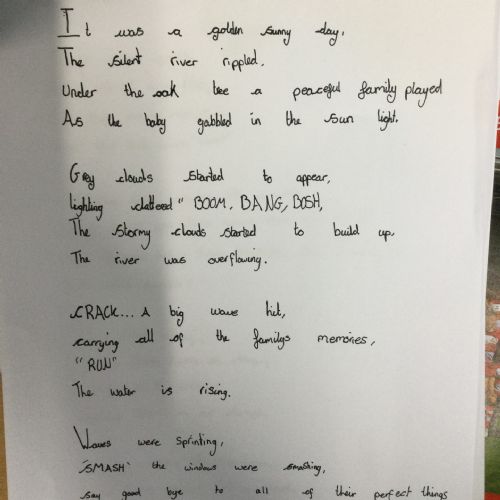 It was a golden sunny day,
The silent river rippled,
Under the oak tree a peaceful family played
As the baby gabbled in the sun light.
Grey clouds started to appear,
lighting clattered "BOOM, BANG, BOSH,
The stormy clouds started to build up,
The river was overflowing.
CRACK... A big wave hit,
carrying all of the familys memories,
"RUN"
The water is rising.
Waves were sprinting,
"SMASH" the windows were smashing,
say good bye to all of their perfect things